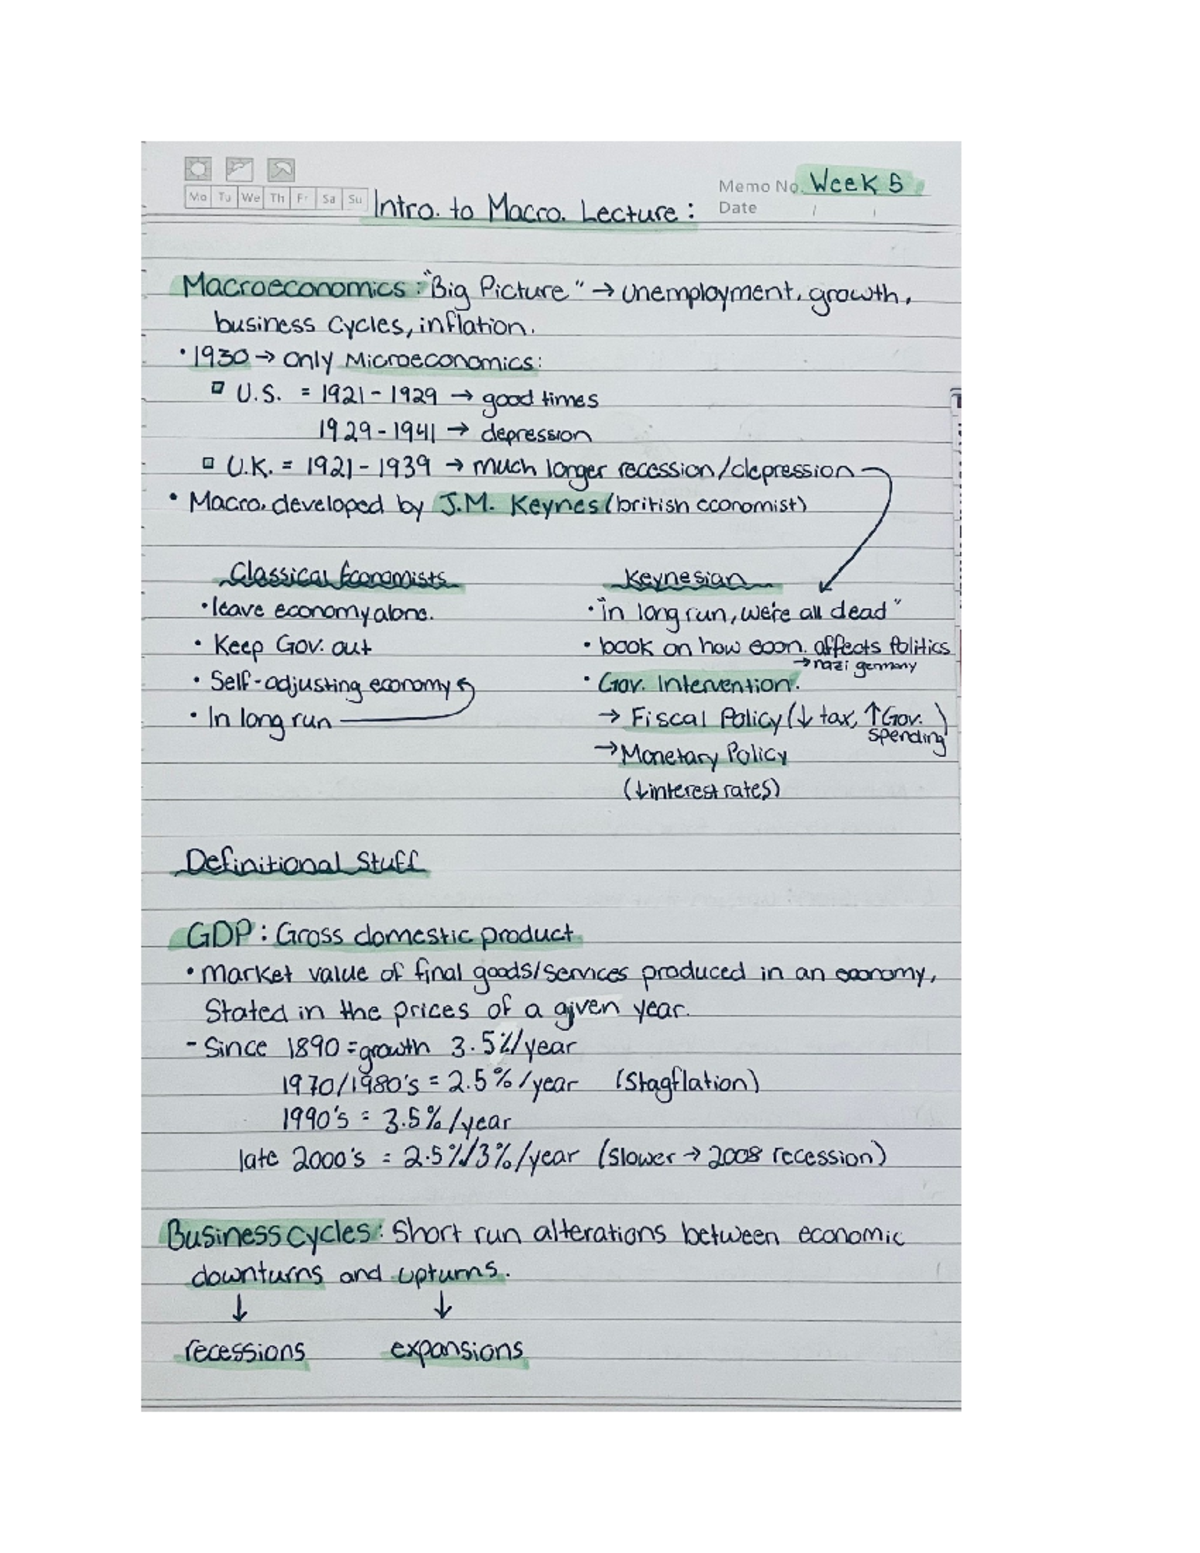 Mo Tu We Th Fr Sa Su
Memo No. Week 5
Date / /
Intro. to Macro. Lecture:
Macroeconomics: "Big Picture" → unemployment, growth,
business cycles, inflation.
• 1930 → only Microeconomics:
▫ U.S. = 1921 - 1929 → good times
1929 - 1941 → depression
▫ U.K. = 1921 - 1939 → much longer recession/depression
• Macro. developed by J.M. Keynes (british economist)
Classical Economists
• leave economy alone.
• Keep Gov. out
• Self-adjusting economy
• In long run
Keynesian
• "in long run, we're all dead"
• book on how econ. affects politics
→ nazi germany
• Gov. Intervention.
→ Fiscal Policy (↓ tax, ↑ Gov. spending)
→ Monetary Policy
(↓ interest rates)
Definitional Stuff
GDP: Gross domestic product
• market value of final goods/services produced in an economy,
Stated in the prices of a given year.
- Since 1890 = growth 3.5%/year
1970/1980's = 2.5%/year (Stagflation)
1990's = 3.5%/year
late 2000's = 2.5%/3%/year (slower → 2008 recession)
Business cycles: Short run alterations between economic
downturns and upturns.
↓ ↓
recessions expansions